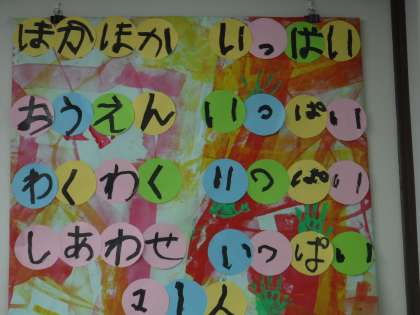 ほかほか いっぱい
おうえん いっぱい
わくわく いっぱい
しあわせ いっぱい